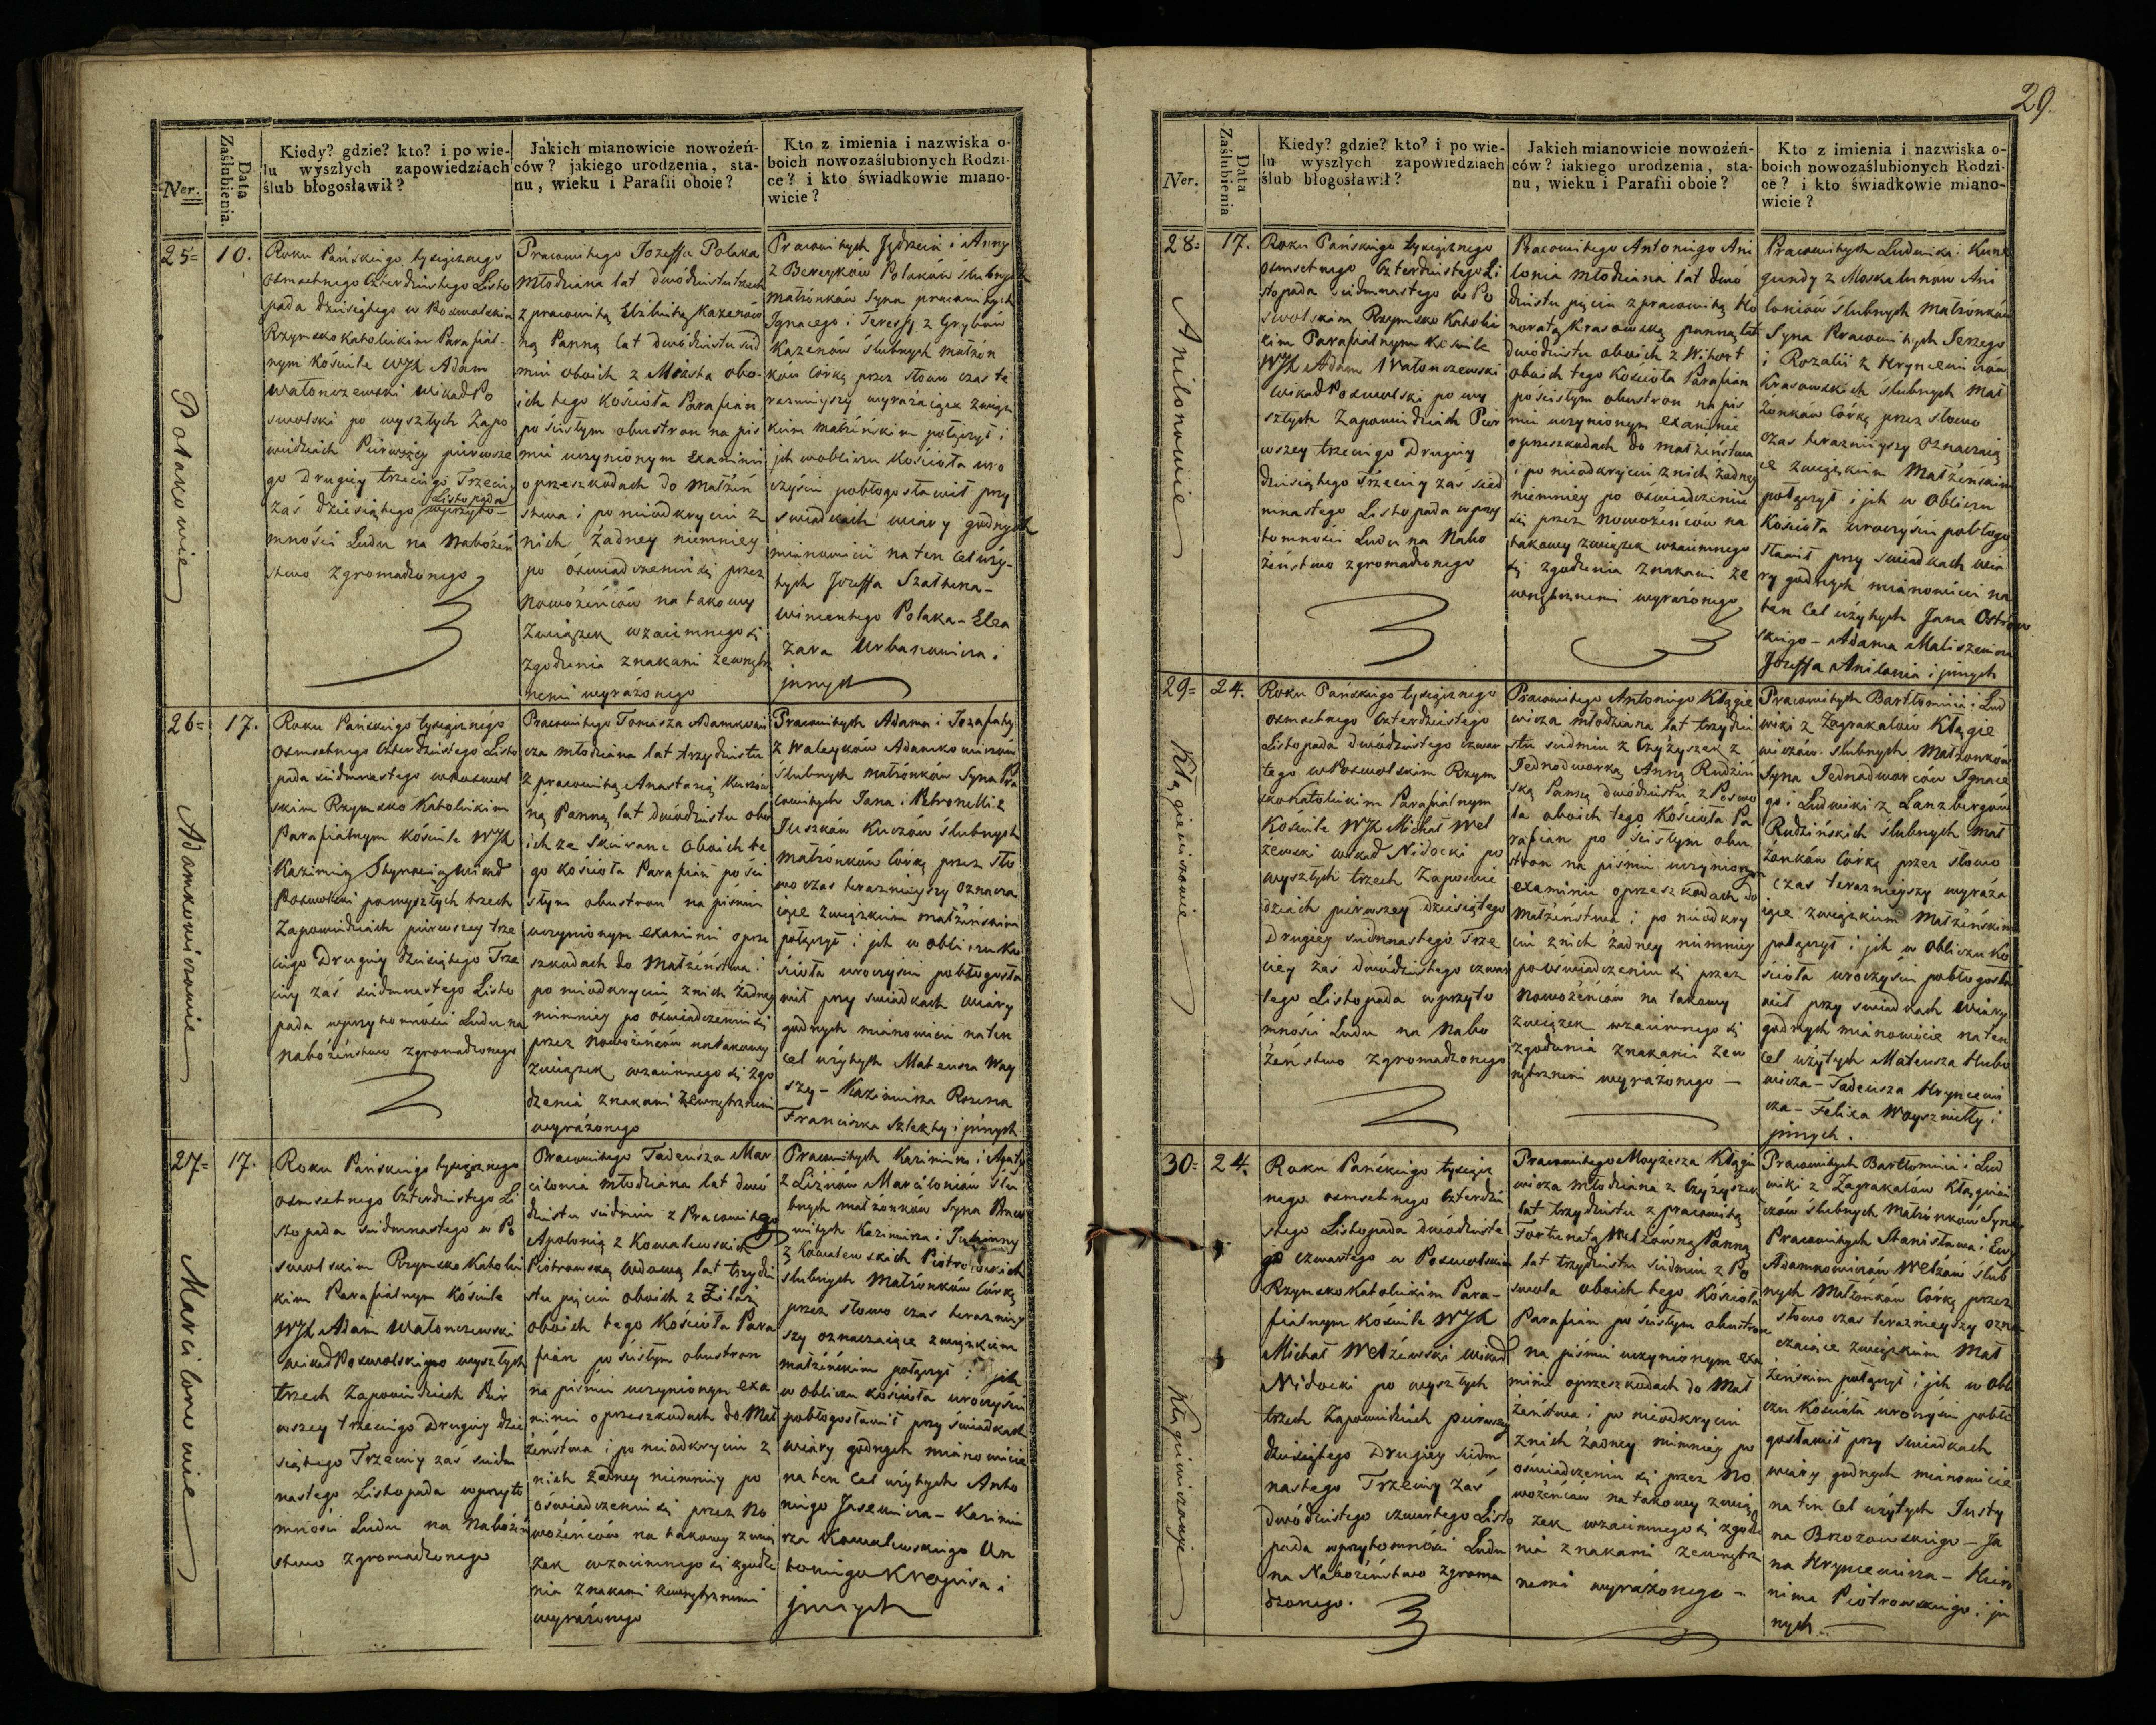 Ner.
Data Zaślubienia.
Kiedy? gdzie? kto? i po wie-
lu wyszłych zapowiedziach
ślub błogosławił?
Jakich mianowicie nowożeń-
ców? jakiego urodzenia, sta-
nu, wieku i Parafii oboie?
Kto z imienia i nazwiska o-
boich nowozaślubionych Rodzi-
ce? i kto świadkowie miano-
wicie?
25=
10.
Polakowie
Roku Pańskiego tysiącznego
osmsetnego czterdziestego Listo
pada dziesiątego w Poswolskim
Rzymsko Katolickim Parafial-
nym Kościele WJX Adam
Wałonczewski Wikad Po
swolski po wyszłych Zapo
wiedziach Pierwszey pierwsze
go Drugiey trzeciego Trzeciey
zaś dziesiątego Listopada wprzyto-
mności Ludu na Nabożeń
stwo zgromadzonego
Pracowitego Jozeffa Polaka
Młodziana lat dwódziestu trzech
z pracowitą Elżbietą Kazenów
ną Panną lat dwódziestu sied
miu oboich z Miasta obo-
ich tego Kościoła Parafian
po ścisłym obustron na piś
mie uczynionym Examinie
o przeszkodach do Małżeń
stwa i po nieodkryciu z
nich żadney niemniey
po oświadczeniu się przez
Nowożeńców na takowy
Związek wzaiemnego się
zgodzenia znakami zewnętrz
nemi wyrażonego
Pracowitych Jędrzeia i Anny
z Bereyków Polaków ślubnych
Małżonków Syna pracowitych
Ignacego i Teressy z Grybów
Kazenów Ślubnych małżon
ków Córkę przez słowo czas te
raznieyszy wyrażaiące związ
kiem małżeńskim połączył i
ich wobliczu Kościoła uro
czyście pobłogosławił przy
świadkach wiary godnych
mianowicie na ten cel uży-
tych Jozeffa Szatkena-
Wincentego Polaka - Elea
zara Urbanowicza i
jnnych
26=
17.
Adamkowiczowie
Roku Pańskiego tysiącznego
osmsetnego czterdziestego Listo
pada siedmnastego w Poswol
skim Rzymsko Katolickim
Parafialnym Kościele WJX
Kazimierz Wikad
Poswolski powyszłych trzech
Zapowiedziach pierwszey trze
ciego Drugiey dziesiątego Trze
ciey zaś siedmnastego Listo
pada wprzytomności Ludu na
Nabożeństwo zgromadzonego
Pracowitego Tomasza Adamkowi
cza młodziana lat trzydziestu
z pracowitą Anastazią Kuczów
ną Panną lat dwódziestu obo
ich ze Skirane oboich te
go Kościoła Parafian po ści
słym obustron na piśmie
uczynionym examinie o prze
szkodach do Małżeństwa i
po nieodkryciu z nich żadney
niemniey po oświadczeniu się
przez Nowożeńców natakowy
związek wzaiemnego się zgo
dzenia znakami zewnętrznemi
wyrażonego
Pracowitych Adama i Jozafaty
z Waleyków Adamkowiczów
Ślubnych małżonków Syna Pra
cowitych Jana i Petronelli z
Juszków Kuczów ślubnych
małżonków Córkę przez sło
wo czas teraznieyszy oznacza
iące związkiem małżeńskim
połączył i ich w obliczu Ko
ścioła uroczyście pobłogosła
wił przy świadkach wiary
godnych mianowicie naten
cel użytych Mateusza Way
szy - Kazimierza Rozena
Franciszka Szlekty i jnnych
27=
17.
Marcilonowie
Roku Pańskiego tysiącznego
osmsetnego czterdziestego Li
stopada siedmnastego w Po
swolskim Rzymsko Katolic
kim Parafialnym Kościele
WJX Adam Wałonczewski
Wikad Poswolski po wyszłych
trzech Zapowiedziach Pier
wszey trzeciego Drugiey dzie
siątego Trzeciey zaś siedm
nastego Listopada wprzyto
mności Ludu na Nabożeń
stwo zgromadzonego
Pracowitego Tadeusza Mar
cilonia młodziana lat dwó
dziestu siedmiu z Pracowitą
Apolonią z Kowalewskich
Piotrowską wdową lat trzydzie
stu pięciu oboich z Zilaż
oboich tego Kościoła Para
fian po ścisłym obustron
na piśmie uczynionym exa
minie o przeszkodach do Mał
żeństwa i po nieodkryciu z
nich żadney niemniey po
oświadczeniu się przez No
wożeńców na takowy zwią
zek wzaiemnego się zgodze
nia znakami zewnętrznemi
wyrażonego
Pracowitych Kazimierza i Agaty
z Liznów Marcilonów Ślu
bnych małżonków Syna Praco
witych Kazimierza i
z Kowalewskich Piotrowskich
ślubnych Małżonków Córkę
przez słowo czas terazniey
szy oznaczaiące związkiem
małżeńskim połączył i ich
w obliczu kościoła uroczyście
pobłogosławił przy świadkach
wiary godnych mianowicie
na ten cel użytych Anto
niego Jasewicza - Kazimie
rza Kowalewskiego An
toniego Kropisa i
jnnych
29.
Ner.
Data Zaślubienia
Kiedy? gdzie? kto? i po wie-
lu wyszłych zapowiedziach
ślub błogosławił?
Jakich mianowicie nowożeń-
ców? iakiego urodzenia, sta-
nu, wieku i Parafii oboie?
Kto z imienia i nazwiska o-
boich nowozaślubionych Rodzi-
ce? i kto świadkowie miano-
wicie?
28=
17.
Anilonowie
Roku Pańskiego tysiącznego
osmsetnego czterdziestego Li
stopada siedmnastego w Po
swolskim Rzymsko Katolic
kim Parafialnym Kościele
WJX Adam Wałonczewski
Wikad Poswolski po wy
szłych Zapowiedziach Pier
wszey trzeciego Drugiey
dziesiątego Trzeciey zaś sied
mnastego Listopada w przy
tomności Ludu na Nabo
żeństwo zgromadzonego
Pracowitego Antoniego Ani
lonia młodziana lat dwó
dziestu pięciu z pracowitą Ho
noratą Krasowską panną lat
dwódziestu oboich z Wihort
oboich tego Kościoła Parafian
po ścisłym obustron na piś
mie uczynionym examinie
o przeszkodach do małżeństwa
i po nieodkryciu z nich żadney
niemniey po oświadczeniu
się przez Nowożeńców na
takowy związek wzaiemnego
się zgodzenia znakami ze
wnętrznemi wyrażonego
Pracowitych Ludwika i Kune
gundy z Moskalunow Ani
loniów ślubnych małżonków
Syna Pracowitych Jerzego
i Rozalii z Hryncewiczów
Krasowskich ślubnych Mał
żonków Córkę przez słowo
czas teraznieyszy oznaczaią
ce związkiem Małżeńskim
połączył i ich w Obliczu
Kościoła uroczyście pobłogo
sławił przy świadkach wia
ry godnych mianowicie na
ten cel użytych Jana Ostrow
skiego - Adama Maliszewicza
Jozeffa Anilonia i jnnych
29=
24.
Kłągiewiczowie
Roku Pańskiego tysiącznego
osmsetnego czterdziestego
Listopada dwódziestego czwar
tego w Poswolskim Rzym
skokatolickim Parafialnym
Kościele WJX Michał Wel
żewski Wikad Nidocki po
wyszłych trzech Zapowie
dziach pierwszey dziesiątego
Drugiey siedmnastego Trze
ciey zaś dwódziestego czwar
tego Listopada w przyto
mności Ludu na Nabo
żeństwo zgromadzonego
Pracowitego Antoniego Kłągie
wicza młodziana lat trzydzie
stu siedmiu z Czyżyszek z
Jednodworką Anną Rudziń
ską Panną dwódziestu z Poswo
la oboich tego Kościoła Pa
rafian po ścisłym obu
stron na piśmie uczynionym
examinie o przeszkodach do
Małżeństwa i po nieodkry
ciu z nich żadney niemniey
po oświadczeniu się przez
Nowożeńców na takowy
związek wzaiemnego się
zgodzenia znakami zew
nętrznemi wyrażonego -
Pracowitych Bartłomieia i Lud
wiki z Zagrakalów Kłągie
wiczów ślubnych Małżonków
Syna Jednodworców Ignace
go i Ludwiki z Lanzbergów
Rudzińskich ślubnych mał
żonków Córkę przez słowo
czas teraznieyszy wyraża
iące związkiem Małżeńskim
połączył i ich w Obliczu Ko
ścioła uroczyście pobłogosła
wił przy świadkach wiary
godnych mianowicie na ten
cel użytych Mateusza Hubo
wicza - Tadeusza Hryncewi
cza - Felixa Woyszwiłły i
jnnych.
30=
24.
Kłągiewiczowie
Roku Pańskiego tysiącz
nego osmsetnego czterdzie
stego Listopada dwódzieste
go czwartego w Poswolskim
Rzymsko Katolickim Para-
fialnym Kościele WJX
Michał Welżewski Wikad
Nidocki po wyszłych
trzech Zapowiedziach pierwszey
dziesiątego Drugiey siedm
nastego Trzeciey zaś
dwódziestego czwartego Listo
pada wprzytomności Ludu
na Nabożeństwo zgroma
dzonego.
Pracowitego Moyżesza Kłągie
wicza młodziana z Czyżyszek
lat trzydziestu z pracowitą
Fortunatą Welżówną Panną
lat trzydziestu siedmiu z Po
swola oboich tego Kościoła
Parafian po ścisłym obustron
na piśmie uczynionym exa
minie o przeszkodach do Mał
żeństwa i po nieodkryciu
z nich żadney niemniey po
oświadczeniu się przez No
wożeńców na takowy zwią
zek wzaiemnego się zgodze
nia znakami zewnętrz
nemi wyrażonego -
Pracowitych Bartłomieia i Lud
wiki z Zagrakalów Kłągiewi
czów ślubnych Małżonków Syna
Pracowitych Stanisława i Ewy
Adamkowiczów Welżów ślub
nych Małżonków Córkę przez
słowo czas teraznieyszy ozna
czaiące związkiem Mał
żeńskim połączył i ich w Obli
czu Kościoła uroczyście pobło
gosławił przy świadkach
wiary godnych mianowicie
na ten cel użytych Justy
na Brozowskiego - Ja
na Hryncewicza - Hiero
nima Piotrowskiego i jn
nych -